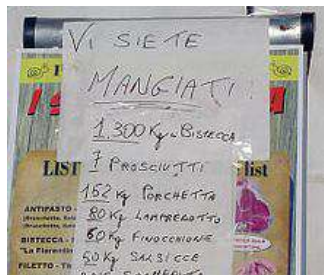 VI SIETE
MANGIATI!
1.300 Kg di BISTECCA
7 PROSCIUTTI
152 Kg PORCHETTA
80 Kg LAMPREDOTTO
60 Kg FINOCCHIONE
50 Kg SALSICCE
LIST
list
ANTIPASTO -
BISTECCA -
"La Fiorentin
FILETTO - T